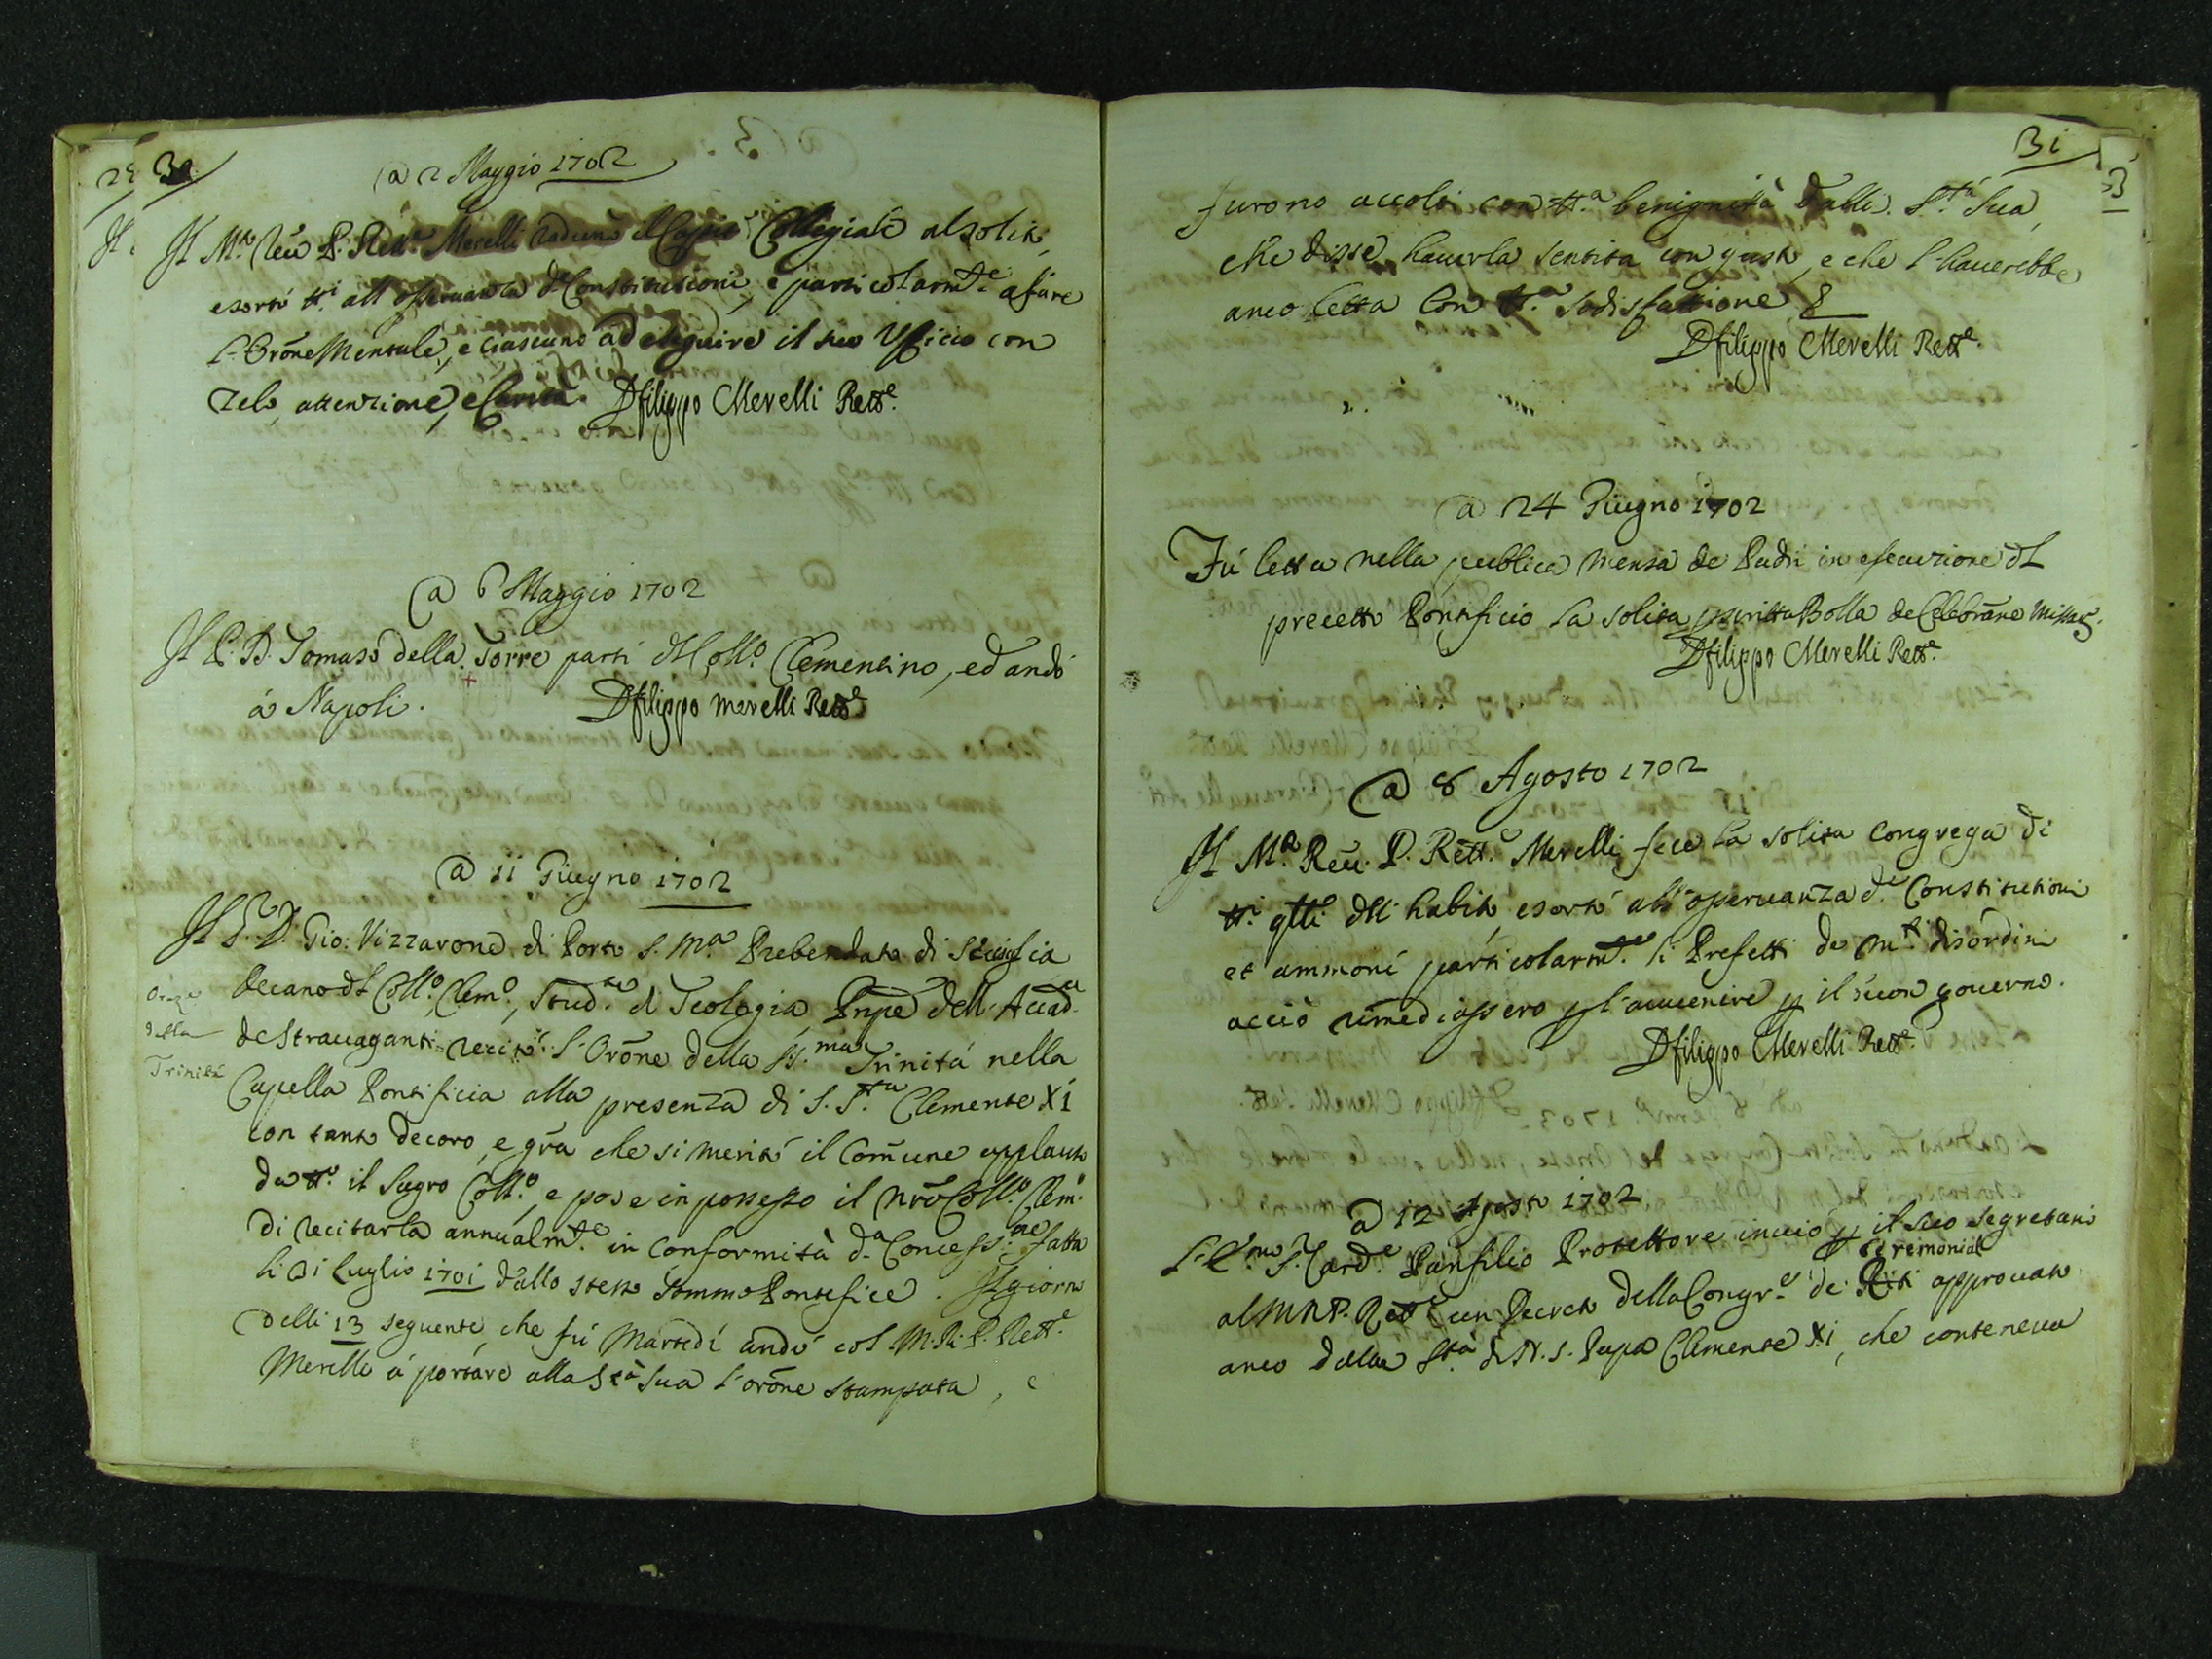 30
a 2 Maggio 1702
Il M.o Reu P. Rett.e Merelli radunò il Capit.o Collegiale al solito,
esortò tt.i all osseruanza d.e Constitutioni, e particolarm.te a fare
l'Orõne Mentale, e ciascuno ad eseguire il suo Ufficio con
zelo, attenzione, e Carità. D filippo Merelli Rett.e
a 6 Maggio 1702
Il P. D. Tomaso della Torre partì dl Coll.o Clementino, ed andò
à Napoli. D filippo Merelli Rett.e
a 11 Giugno 1702
Il S.r D. Gio: Vizzarone di Porto S. M.a Prebendato di Siuiglia
Decano dl Coll.o Clem.o, Stud.te di Teologia, Pnpe dell' Accad.a
Oraz.e
della
Trinità
de Strauaganti recitò l'Orõne della SS.ma Trinità nella
Capella Pontificia alla presenza di S. S.ta Clemente XI
con tanto decoro, e grã che si meritò il Com̃une applauso
da tt.o il Sagro Coll.o, e pose in possesso il nr̃o Coll.o Clem.o
di recitarla annualm.te in conformità d.a Concess.ne fatta
li 21 Luglio 1701 dallo stesso Sommo Pontefice. Il giorno
delli 13 seguente, che fù Martedì andò col M. R. P. Rett.e
Merelli à portare alla S.tà Sua l'orõne stampata, e
31
furono accolti con tt.a benignità dalla S.tà Sua,
che disse hauerla sentita con gusto, e che l'hauerebbe
anco letta con tt.a sodisfattione
D filippo Merelli Rett.e
a 24 Giugno 1702
Fù letta nella publica mensa de Padri in esecuzione dl
precetto Pontificio la solita pscritta Bolla de Celebrãne Missar.
D filippo Merelli Rett.e
a 8 Agosto 1702
Il M.o Reu. P. Rett.e Merelli fece la solita congrega di
tt.i qlli dll'habito, esortò all'osseruanza d.e Constitutioni
et ammonì particolarm.te li Prefetti de m.ti disordini
acciò rimediassero p l'auuenire p il buon gouerno.
D filippo Merelli Rett.e
a 12 Agosto 1702
L'E.mo S.r Card.e Panfilio Protettore inuiò p il suo Segretario
al M.R.P. Rett.e un Decreto della Congr.e de Riti approuato
Ceremoniali
anco dalla S.tà di N. S. Papa Clemente XI, che conteneua